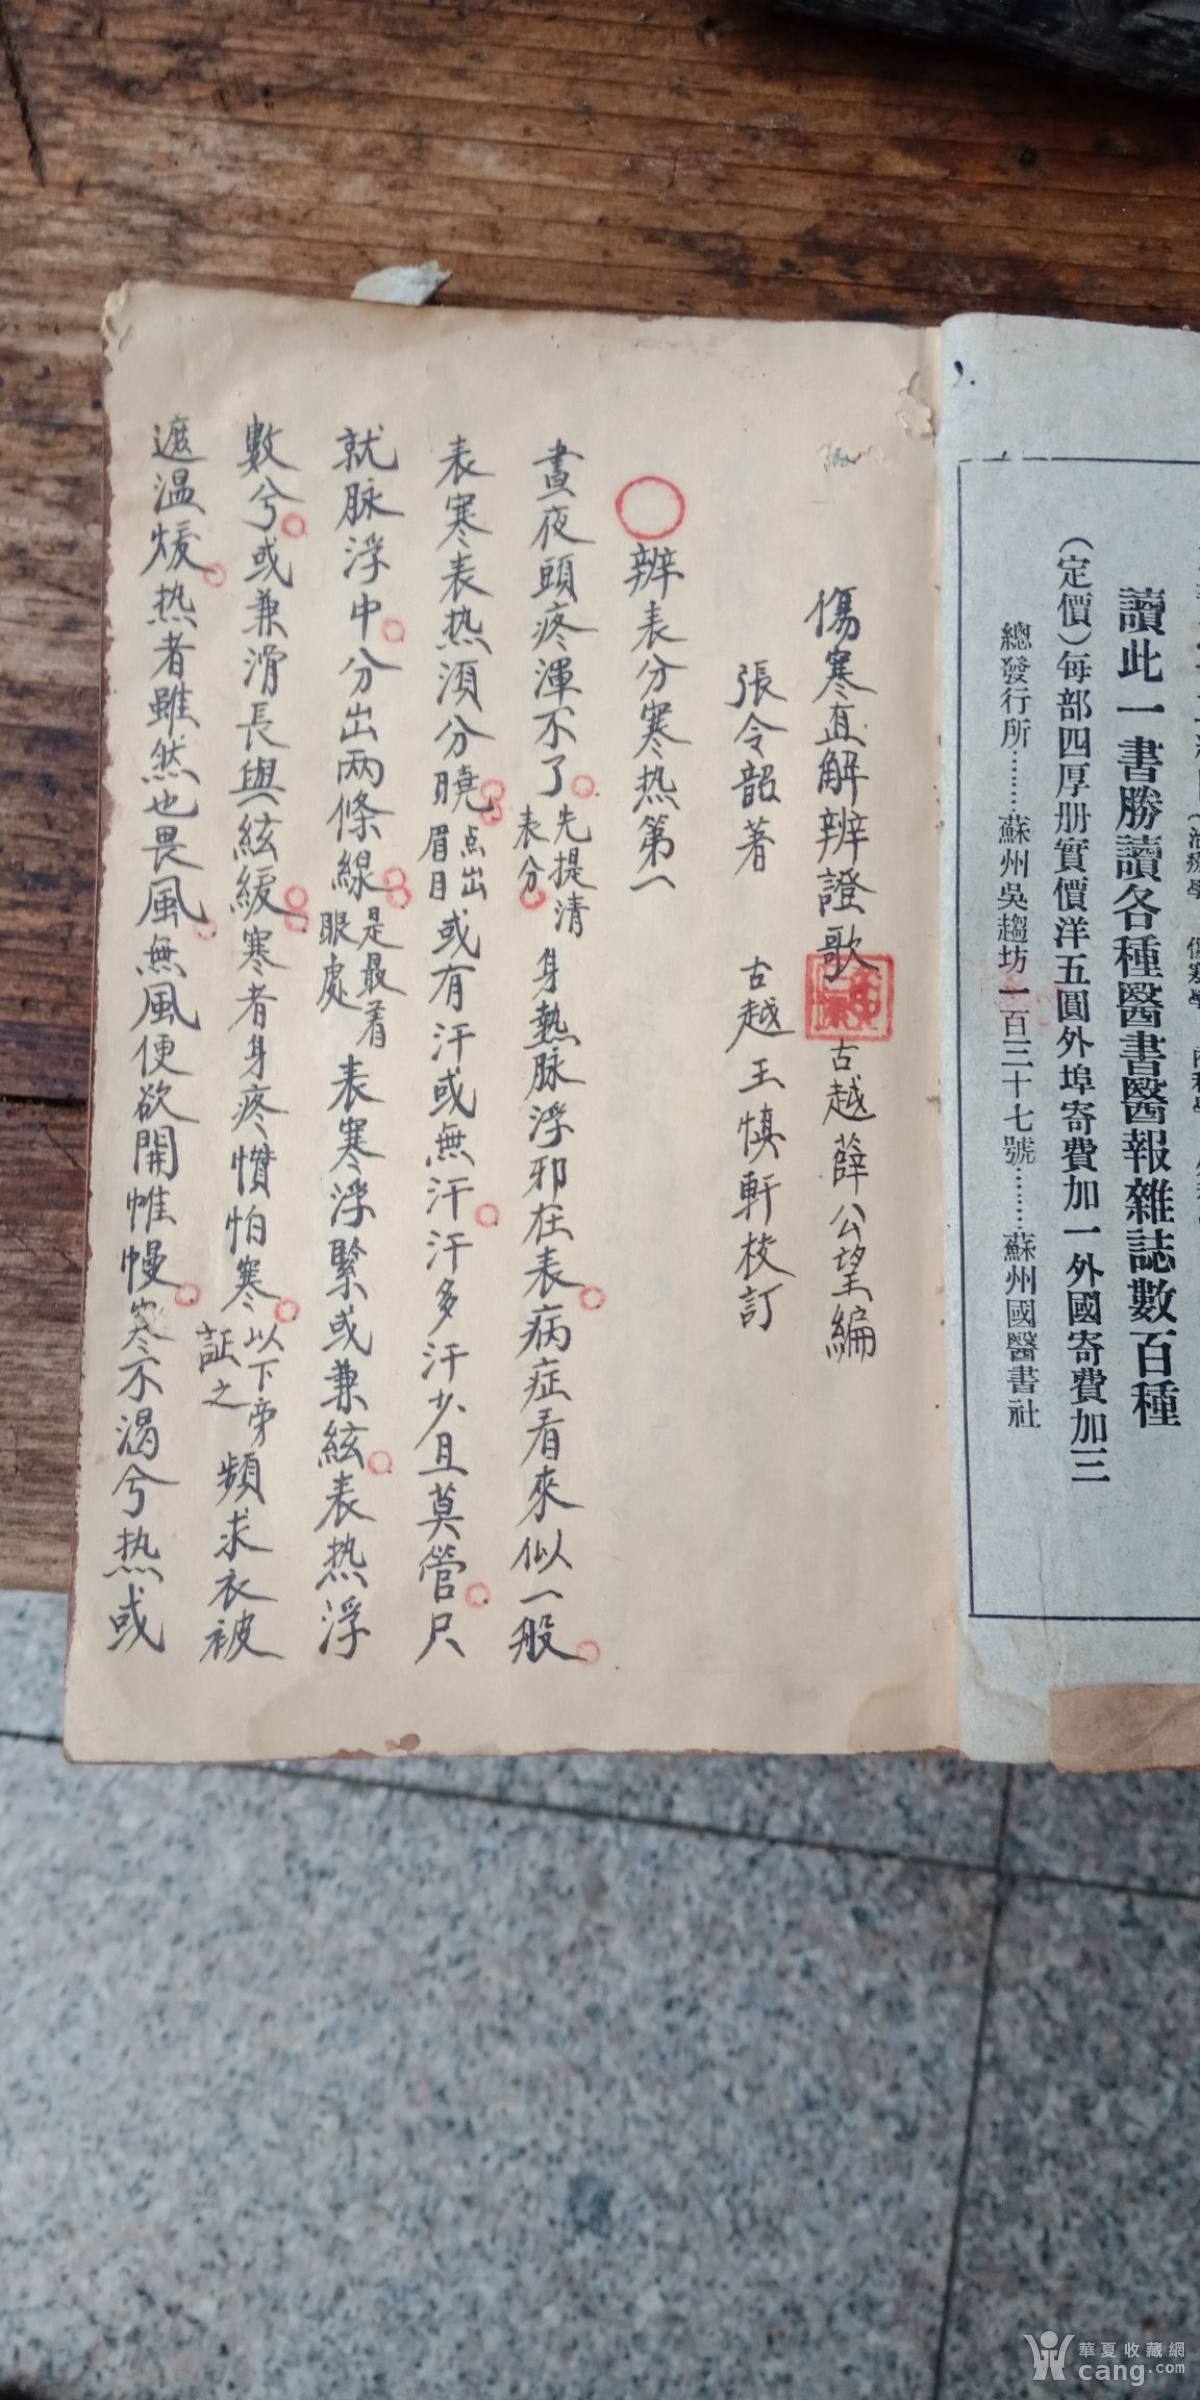 讀此一書勝讀各種醫書醫報雜誌數百種
（定價）每部四厚册實價洋五圓外埠寄費加一外國寄費加三
總發行所……蘇州吳趨坊一百三十七號……蘇州國醫書社
傷寒直解辨證歌 古越薛公望編
張令韶著 古越王慎軒校訂
辨表分寒热第一
晝夜頭疼渾不了先提清表分身熱脉浮邪在表病症看來似一般
表寒表热須分曉点出眉目或有汗或無汗汗多汗少且莫管只
就脉浮中分出兩條線是最着眼處表寒浮緊或兼絃表热浮
數兮或兼滑長與絃緩寒者身疼懫怕寒以下旁証之頻求衣被
遮温煖热者雖然也畏風無風便欲開帷幔寒不渴兮热或
華夏收藏網
cang.com